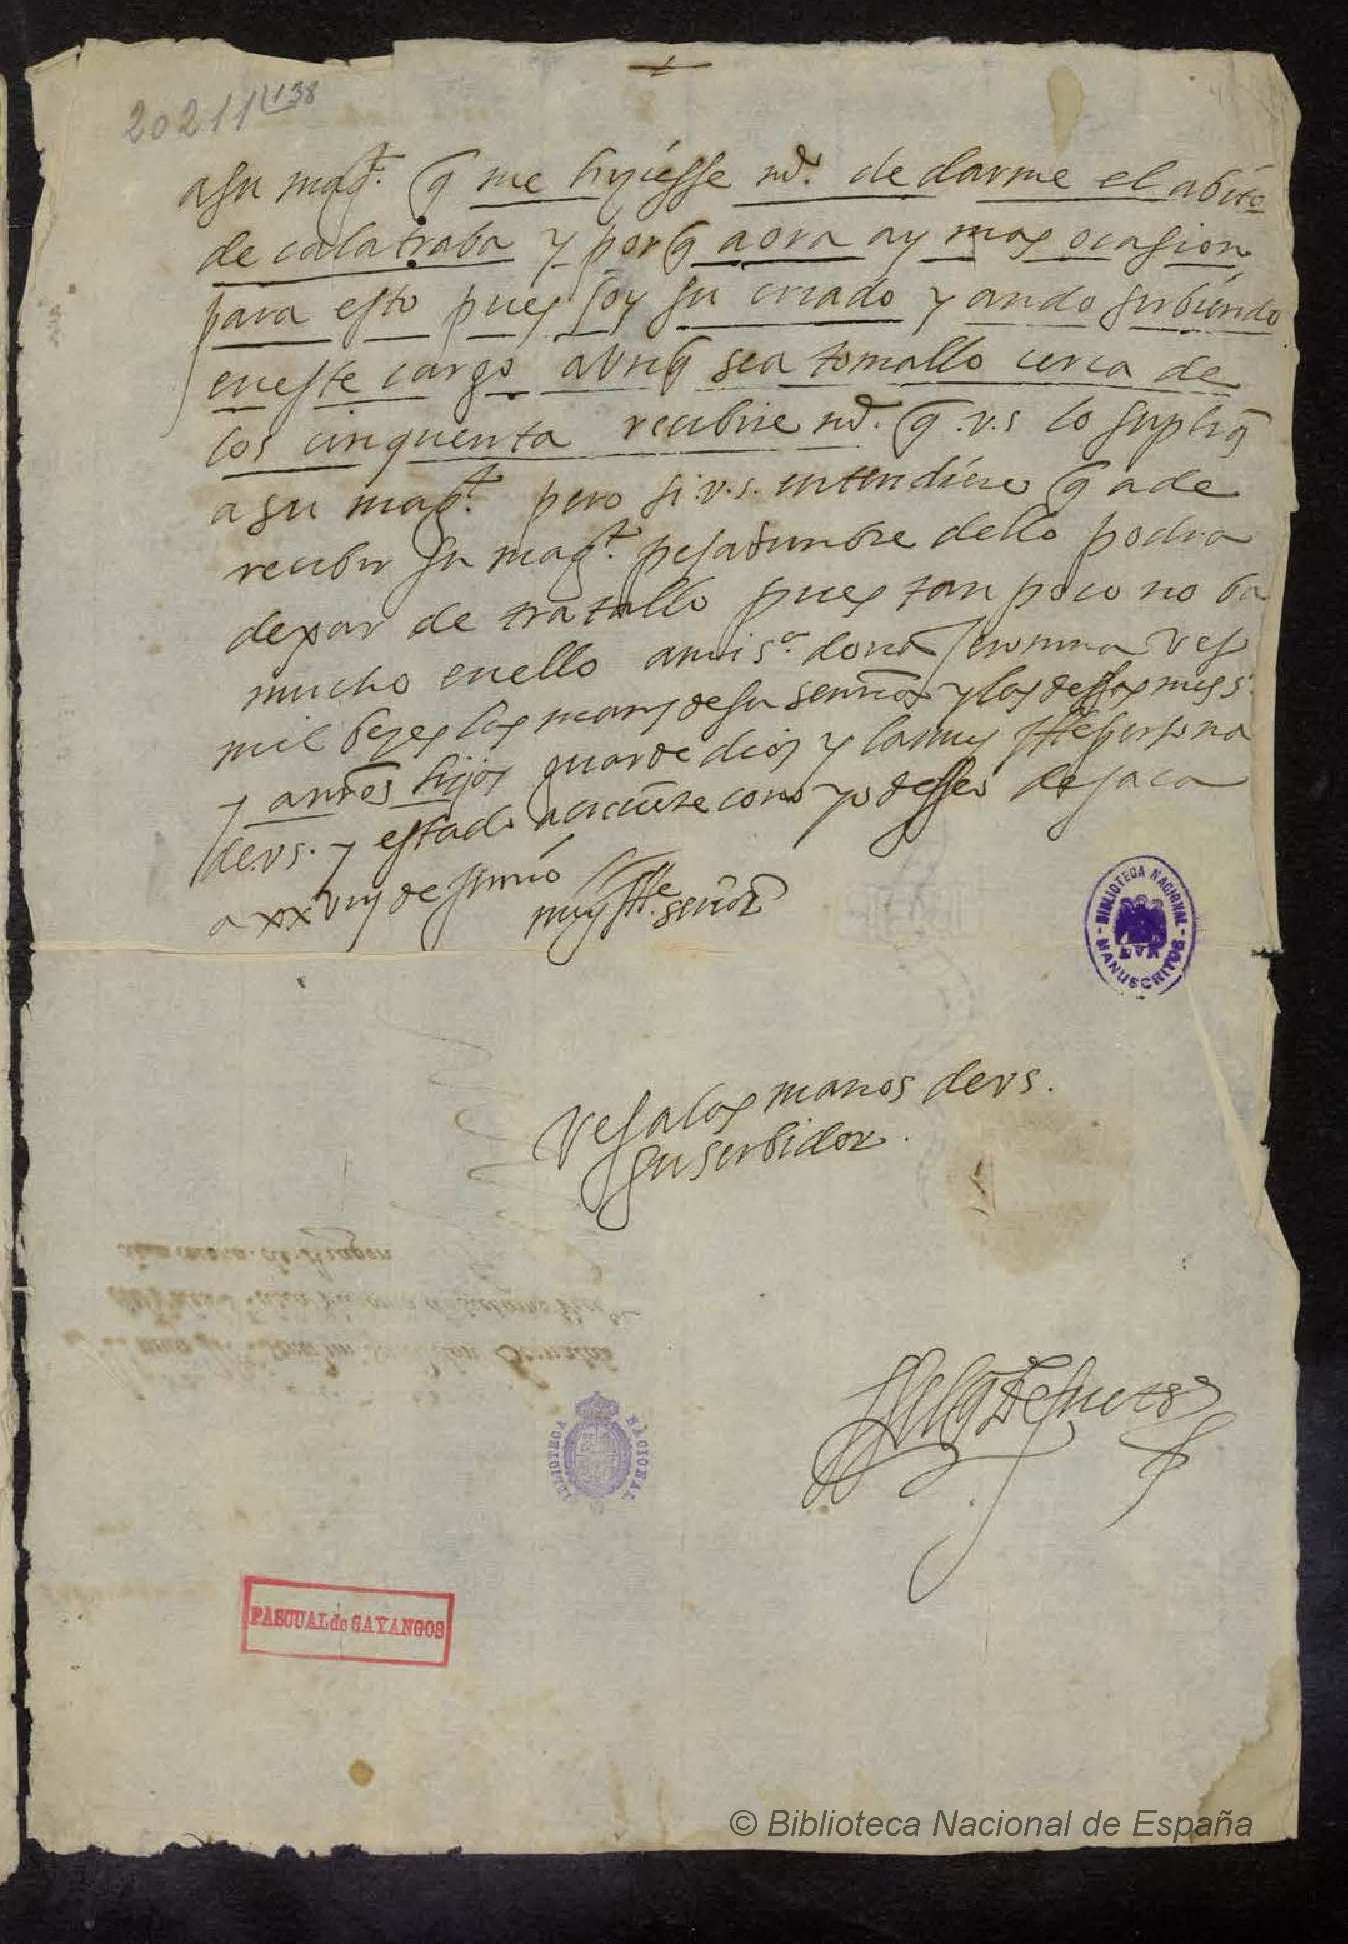 20211 138
a su mag.t q me hyziesse md. de darme el abito
de calatraba y porq aora ay mas ocasion
para esto pues soy su criado y ando sirbiendo
en este cargo aunq sea tomallo cerca de
los cinquenta recibire md. q .v.s lo supliq
a su mag.t pero si .v.s. entendiere q a de
recibir su mag.t pesadumbre dello podra
dexar de tratallo pues tan poco no ba
mucho en ello a mi s.a doña Jeronima beso
mil bezes las manos de su señoria y las dessos mis s.
y amos hijos guarde dios y la muy Ille persona
de.vs. y estado acreciente como yo desseo de Jaca
a xxviij de junio
muy Ille señor
Vesa las manos de vs.
su serbidor
BIBLIOTECA NACIONAL
MANUSCRITOS
NACIONAL
PASCUAL de GAYANGOS
© Biblioteca Nacional de España